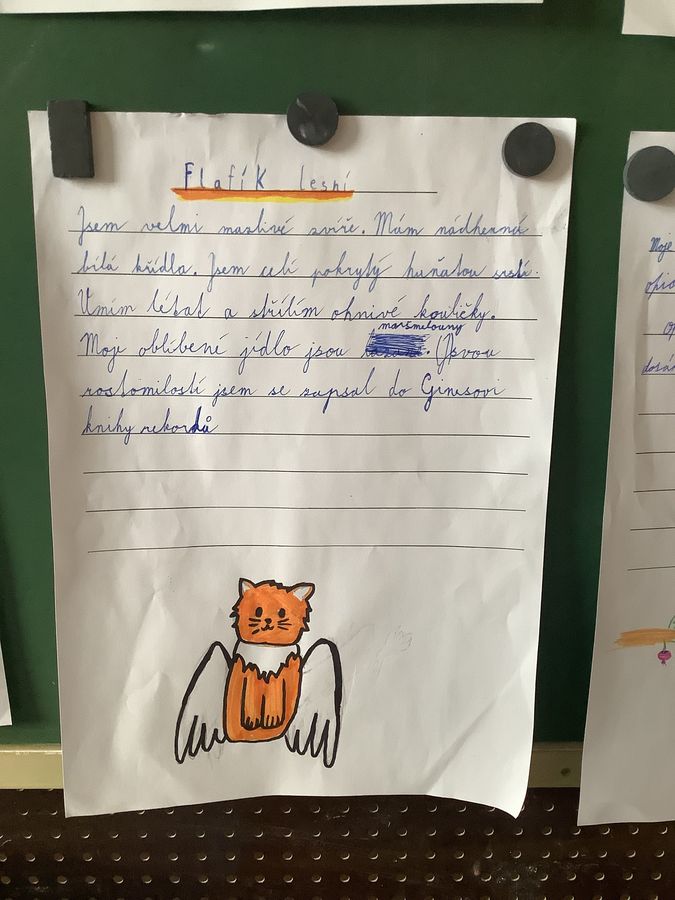 Flafík lesní
Jsem velmi mazlivé zvíře. Mám nádherná
bílá křídla. Jsem celí pokrytý huňatou srstí.
Umím létat a střílím ohnivé kouličky.
marsmelouny
Moje oblíbené jídlo jsou . (J)svou
rostomilostí jsem se zapsal do Ginesovi
knihy rekordů
Moje